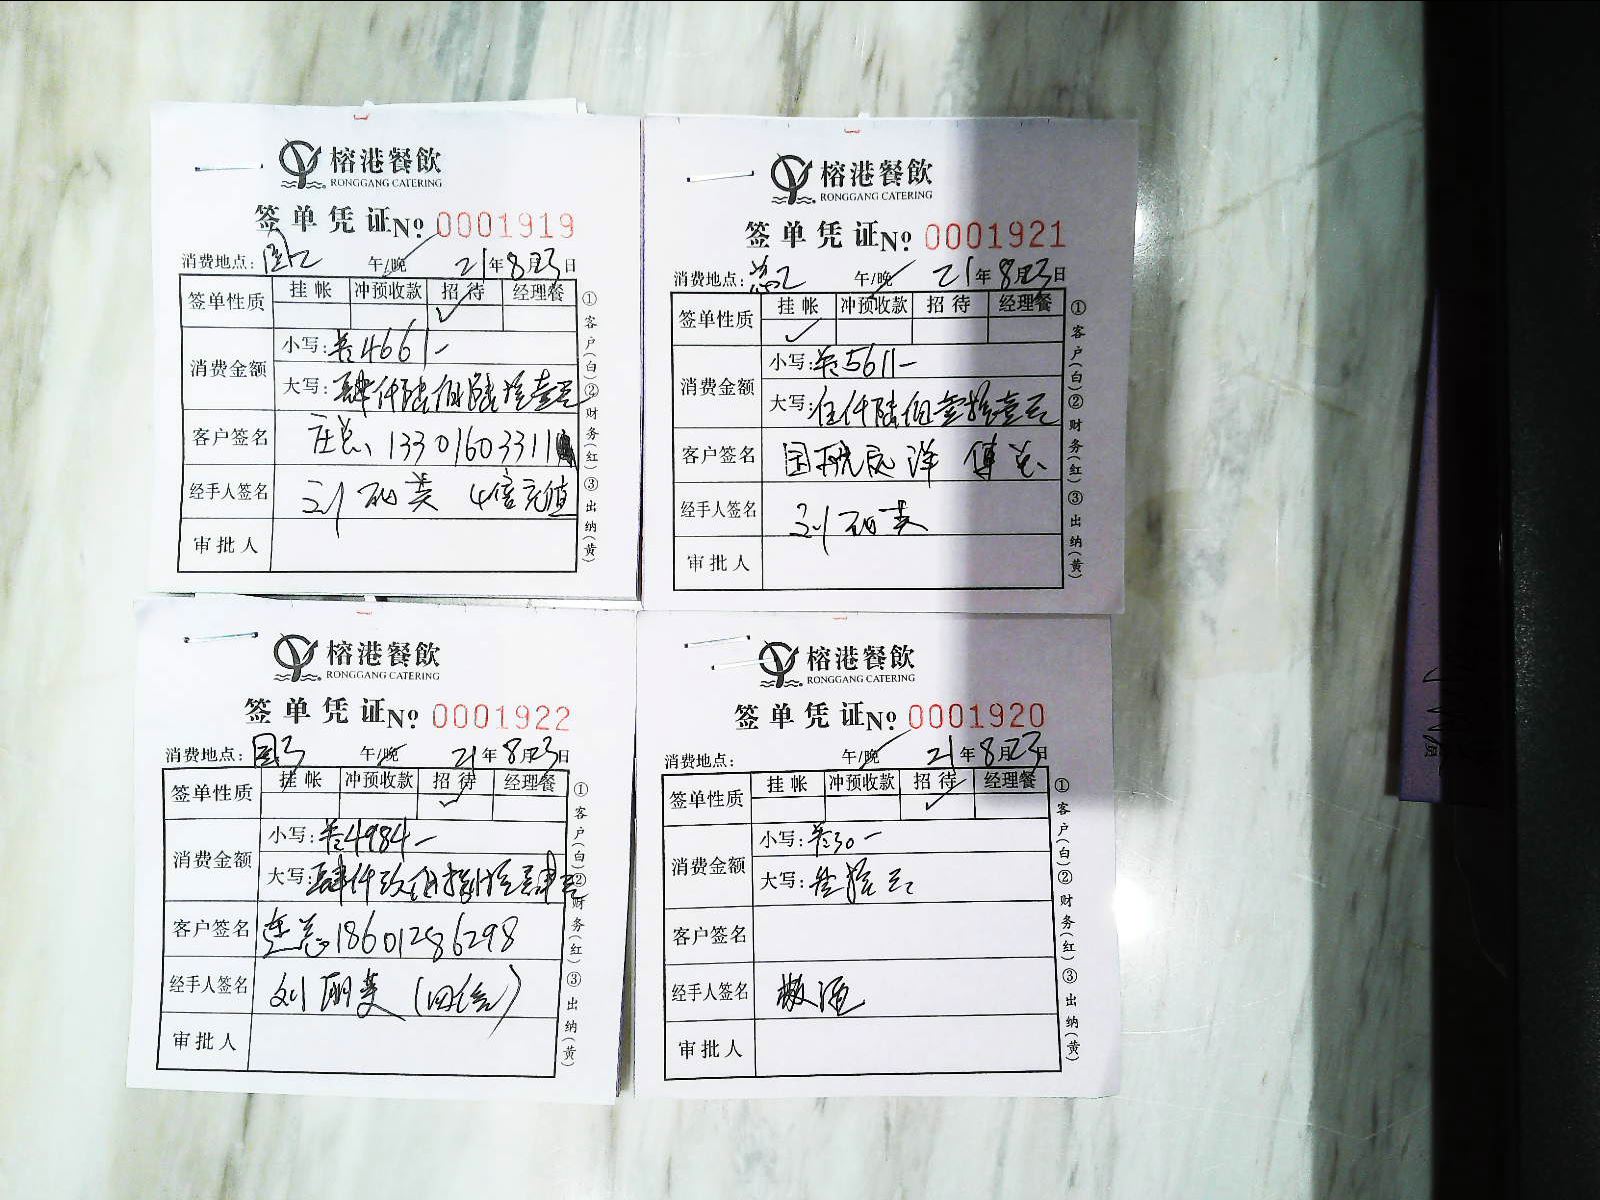 榕港餐飲
RONGGANG CATERING
签单凭证No 0001919
消费地点: 午/晚 21年8月23日
签单性质 挂帐 冲预收款 招待 经理餐
✓
消费金额 小写: 4661-
大写: 肆仟陆佰陆拾壹元
客户签名 庄总、13301603311
经手人签名 刘 4倍充值
审批人
①客户(白)②财务(红)③出纳(黄)
榕港餐飲
RONGGANG CATERING
签单凭证No 0001921
消费地点: 午/晚 21年8月23日
签单性质 挂帐 冲预收款 招待 经理餐
✓
消费金额 小写: 5611-
大写: 伍仟陆佰壹拾壹元
客户签名 国航远洋 傅总
经手人签名 刘
审批人
①客户(白)②财务(红)③出纳(黄)
榕港餐飲
RONGGANG CATERING
签单凭证No 0001922
消费地点: 午/晚 21年8月23日
签单性质 挂帐 冲预收款 招待 经理餐
✓
消费金额 小写: 4984-
大写: 肆仟玖佰捌拾肆元
客户签名 总 18601286298
经手人签名 刘丽英 (四倍)
审批人
①客户(白)②财务(红)③出纳(黄)
榕港餐飲
RONGGANG CATERING
签单凭证No 0001920
消费地点: 午/晚 21年8月23日
签单性质 挂帐 冲预收款 招待 经理餐
✓
消费金额 小写: 30-
大写: 叁拾元
客户签名
经手人签名 敬酒
审批人
①客户(白)②财务(红)③出纳(黄)